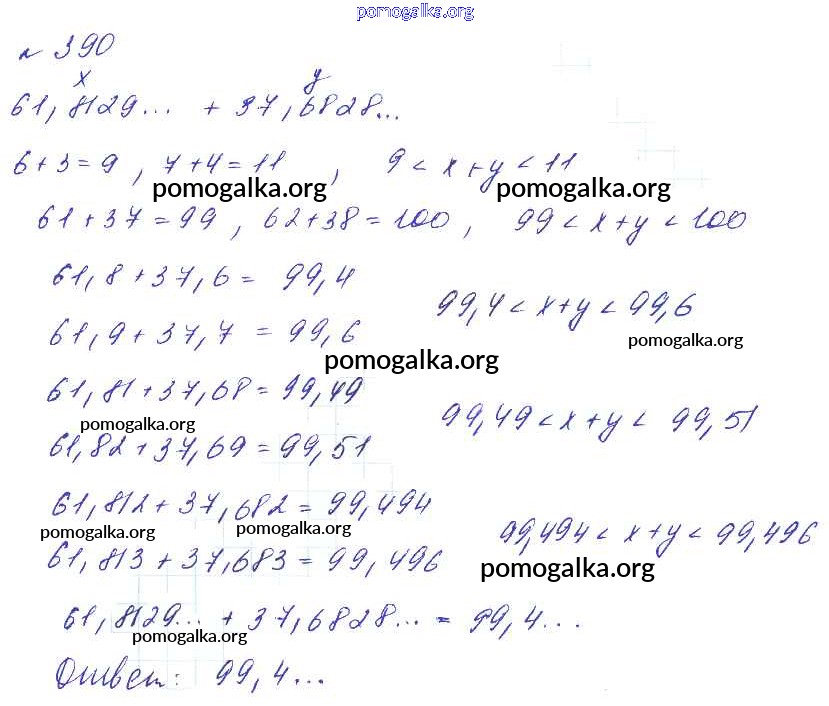 pomogalka.org
№ 390
x y
61,8129... + 37,6828...
6+3=9, 7+4=11, 9 < x+y < 11
pomogalka.org pomogalka.org
61+37=99, 62+38=100, 99 < x+y < 100
61,8+37,6= 99,4
99,4 < x+y < 99,6
61,9+37,7 = 99,6
pomogalka.org
pomogalka.org
61,81+37,68=99,49
99,49 < x+y < 99,51
pomogalka.org
61,82+37,69=99,51
61,812+37,682=99,494
pomogalka.org pomogalka.org
99,494 < x+y < 99,496
61,813+37,683=99,496
pomogalka.org
61,8129... + 37,6828... = 99,4...
pomogalka.org
Ответ: 99,4...